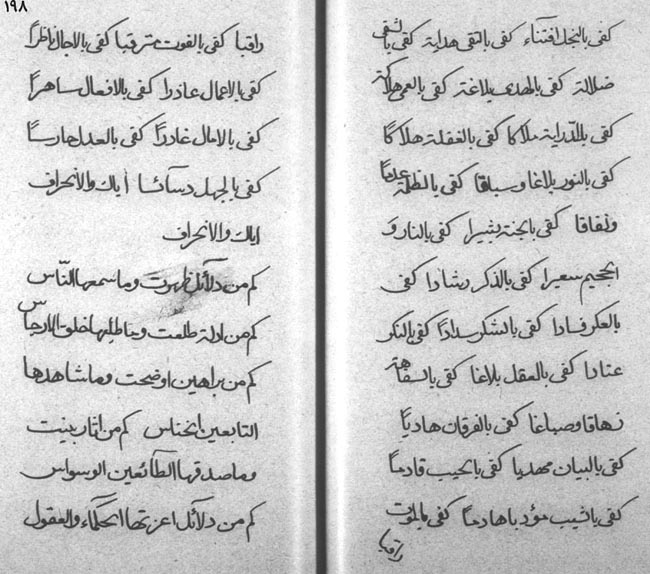 كفى بالبخل افتناء كفى بالتقى هداية كفى بالشقى
ضلالة كفى بالهدى بلاغة كفى بالعمى هلاكة
كفى بالدراية ملاكا كفى بالغفلة هلاكا
كفى بالنور بلاغا وسباقا كفى بالظلمة
ونفاقا كفى بالجنة بشيرا كفى بالنار و
الجحيم سعيرا كفى بالذكر رشادا كفى
بالمكر فسادا كفى بالشكر سدادا كفى بالنكر
عنادا كفى بالعقل بلاغا كفى بالسفاهة
كفى بالفرقان هاديا
كفى بالبيان مهديا كفى بالحيب قادما
كفى بالشيب مؤدبا هادما كفى بالموت
راقبا
١٩٨
راقبا كفى بالفوت مترقبا كفى بالاجال ناظرا
كفى بالاعمال عاذرا كفى بالافعال ساهرا
كفى بالامال غادرا كفى بالعدل حارسا
كفى بالجهل دسائسا اياك والانحراف
اياك والانحراف
كم من دلائل ظهرت وما سمعها الناس
كم من ادلة طلعت وما طلبها الارجاس
كم من براهين اوضحت وما شاهدها
التابعين الخناس كم من اثار بنيت
وما صدقها الطائعين الوسواس
كم من دلائل اعزتها الحكماء والعقول